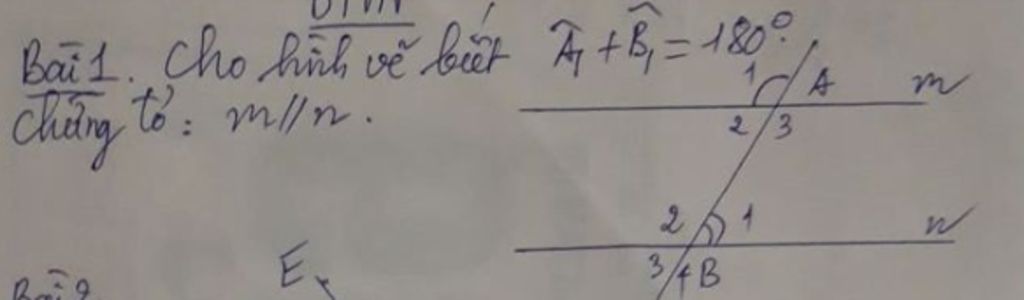 BTVN
Bài 1. Cho hình vẽ biết Â₁ + B̂₁ = 180°.
Chứng tỏ: m//n.
1 A m
2 3
2 1 n
3 4 B
E
Bài 2